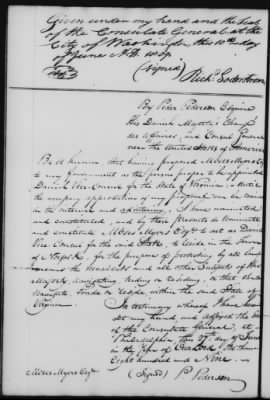 Given under my hand and the Seal
of the Consulate General at the
City of Washington this 10th day
of June A.D. 1809.
(signed)
Richd. Soderstrom
By Peder Pederson Esquire
His Danish Majesty's Chargé
des Affaires, and Consul General
near the United States of America
Be it known that having proposed Moses Myers Esqr
to my Government as the person proper to be appointed
Danish Vice Consul for the State of Virginia, untill
the necessary approbation of my proposal can be
in the interim and ad interim, I have nominated
and constituted, and by these Presents do nominate
and constitute Moses Myers Esqr to act as Danish
Vice Consul for the said State, to reside in the Town
of Norfolk, for the purpose of protecting by all
means the Merchants and all other Subjects of His
Majesty, navigating, trading or residing, or that shall
navigate, trade or reside within the said State of
Virginia.
In testimony whereof I have here
set my hand, and affixed the Seal
of the Consulate General, at
Philadelphia this 27. day of June
in the Year of Our Lord One thousand
Eight hundred and Nine.
Moses Myers Esqr
(Signed) P. Pederson